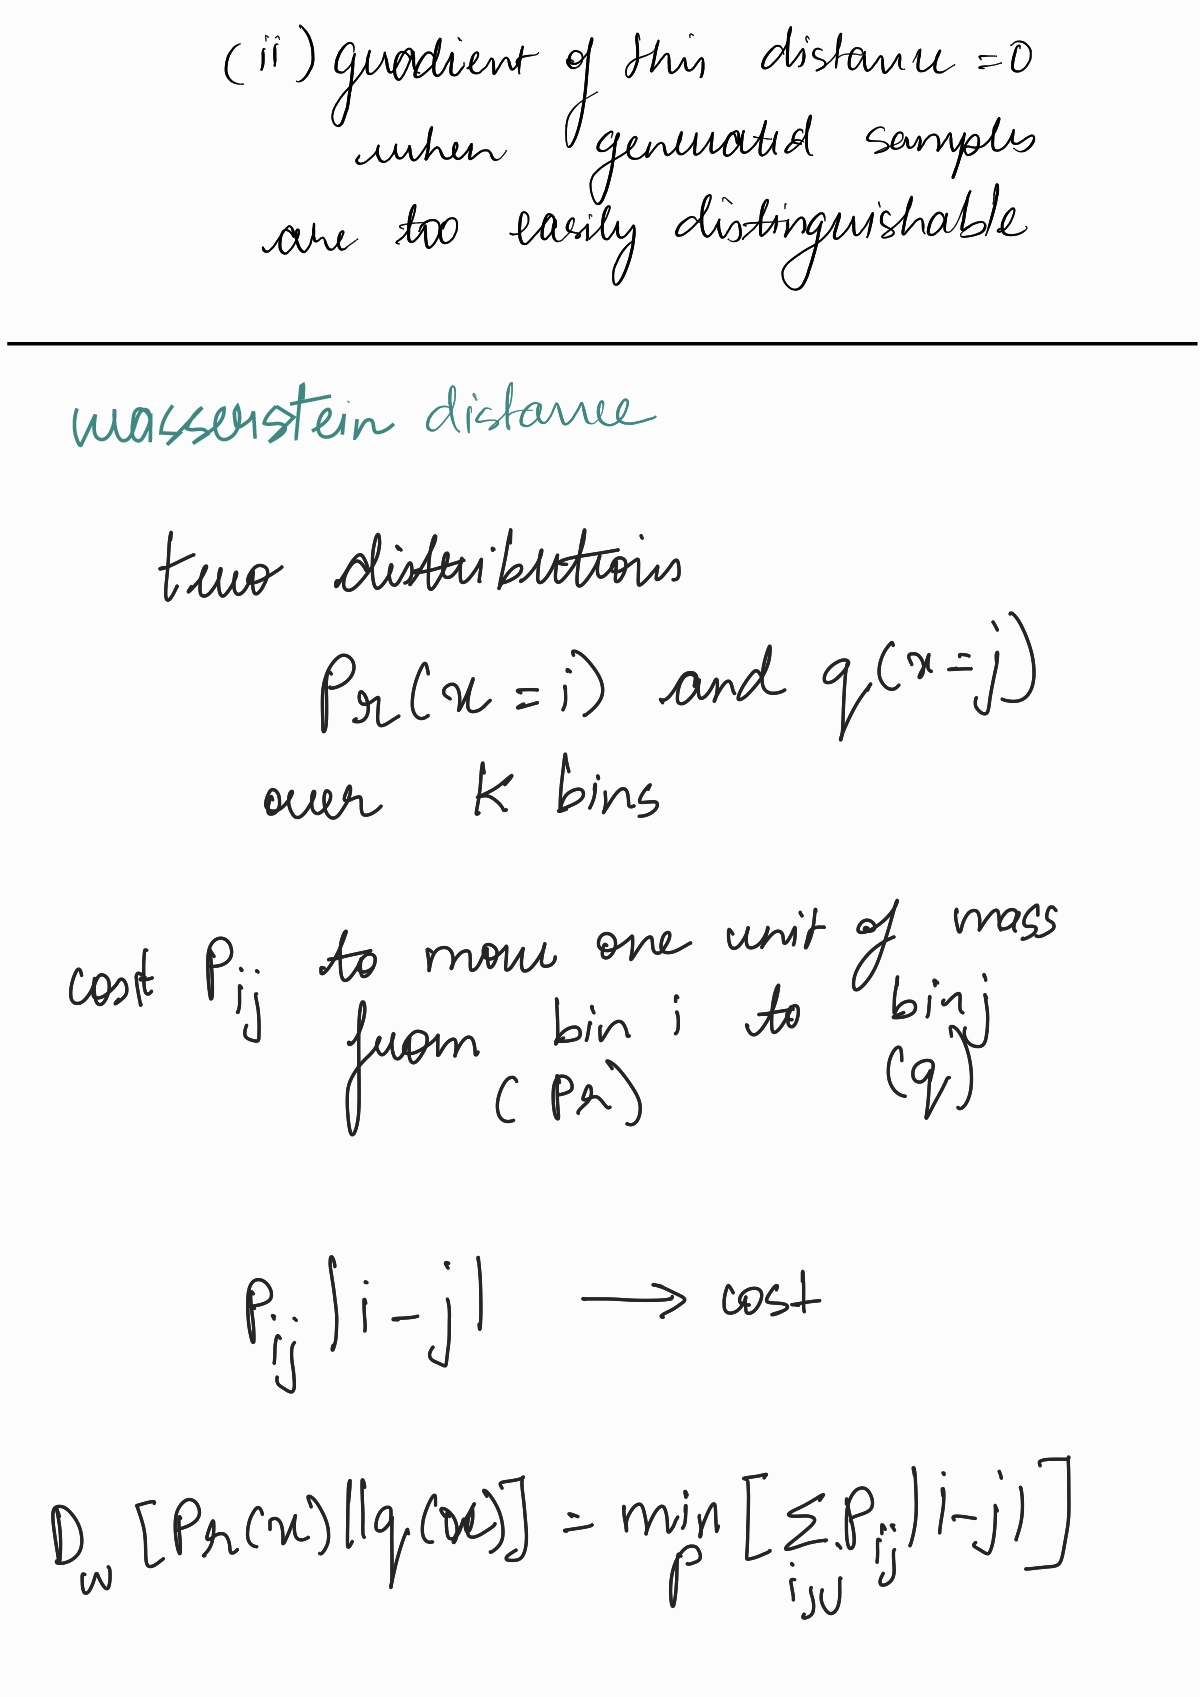 (ii) gradient of this distance = 0
when generated samples
are too easily distinguishable
wasserstein distance
two distributions
Pr(x = i) and q(x = j)
over K bins
cost Pij to move one unit of mass
from bin i to bin j
(Pr) (q)
Pij |i - j| → cost
Dw [Pr(x) || q(x)] = min [Σ Pij |i - j|]
P i,j